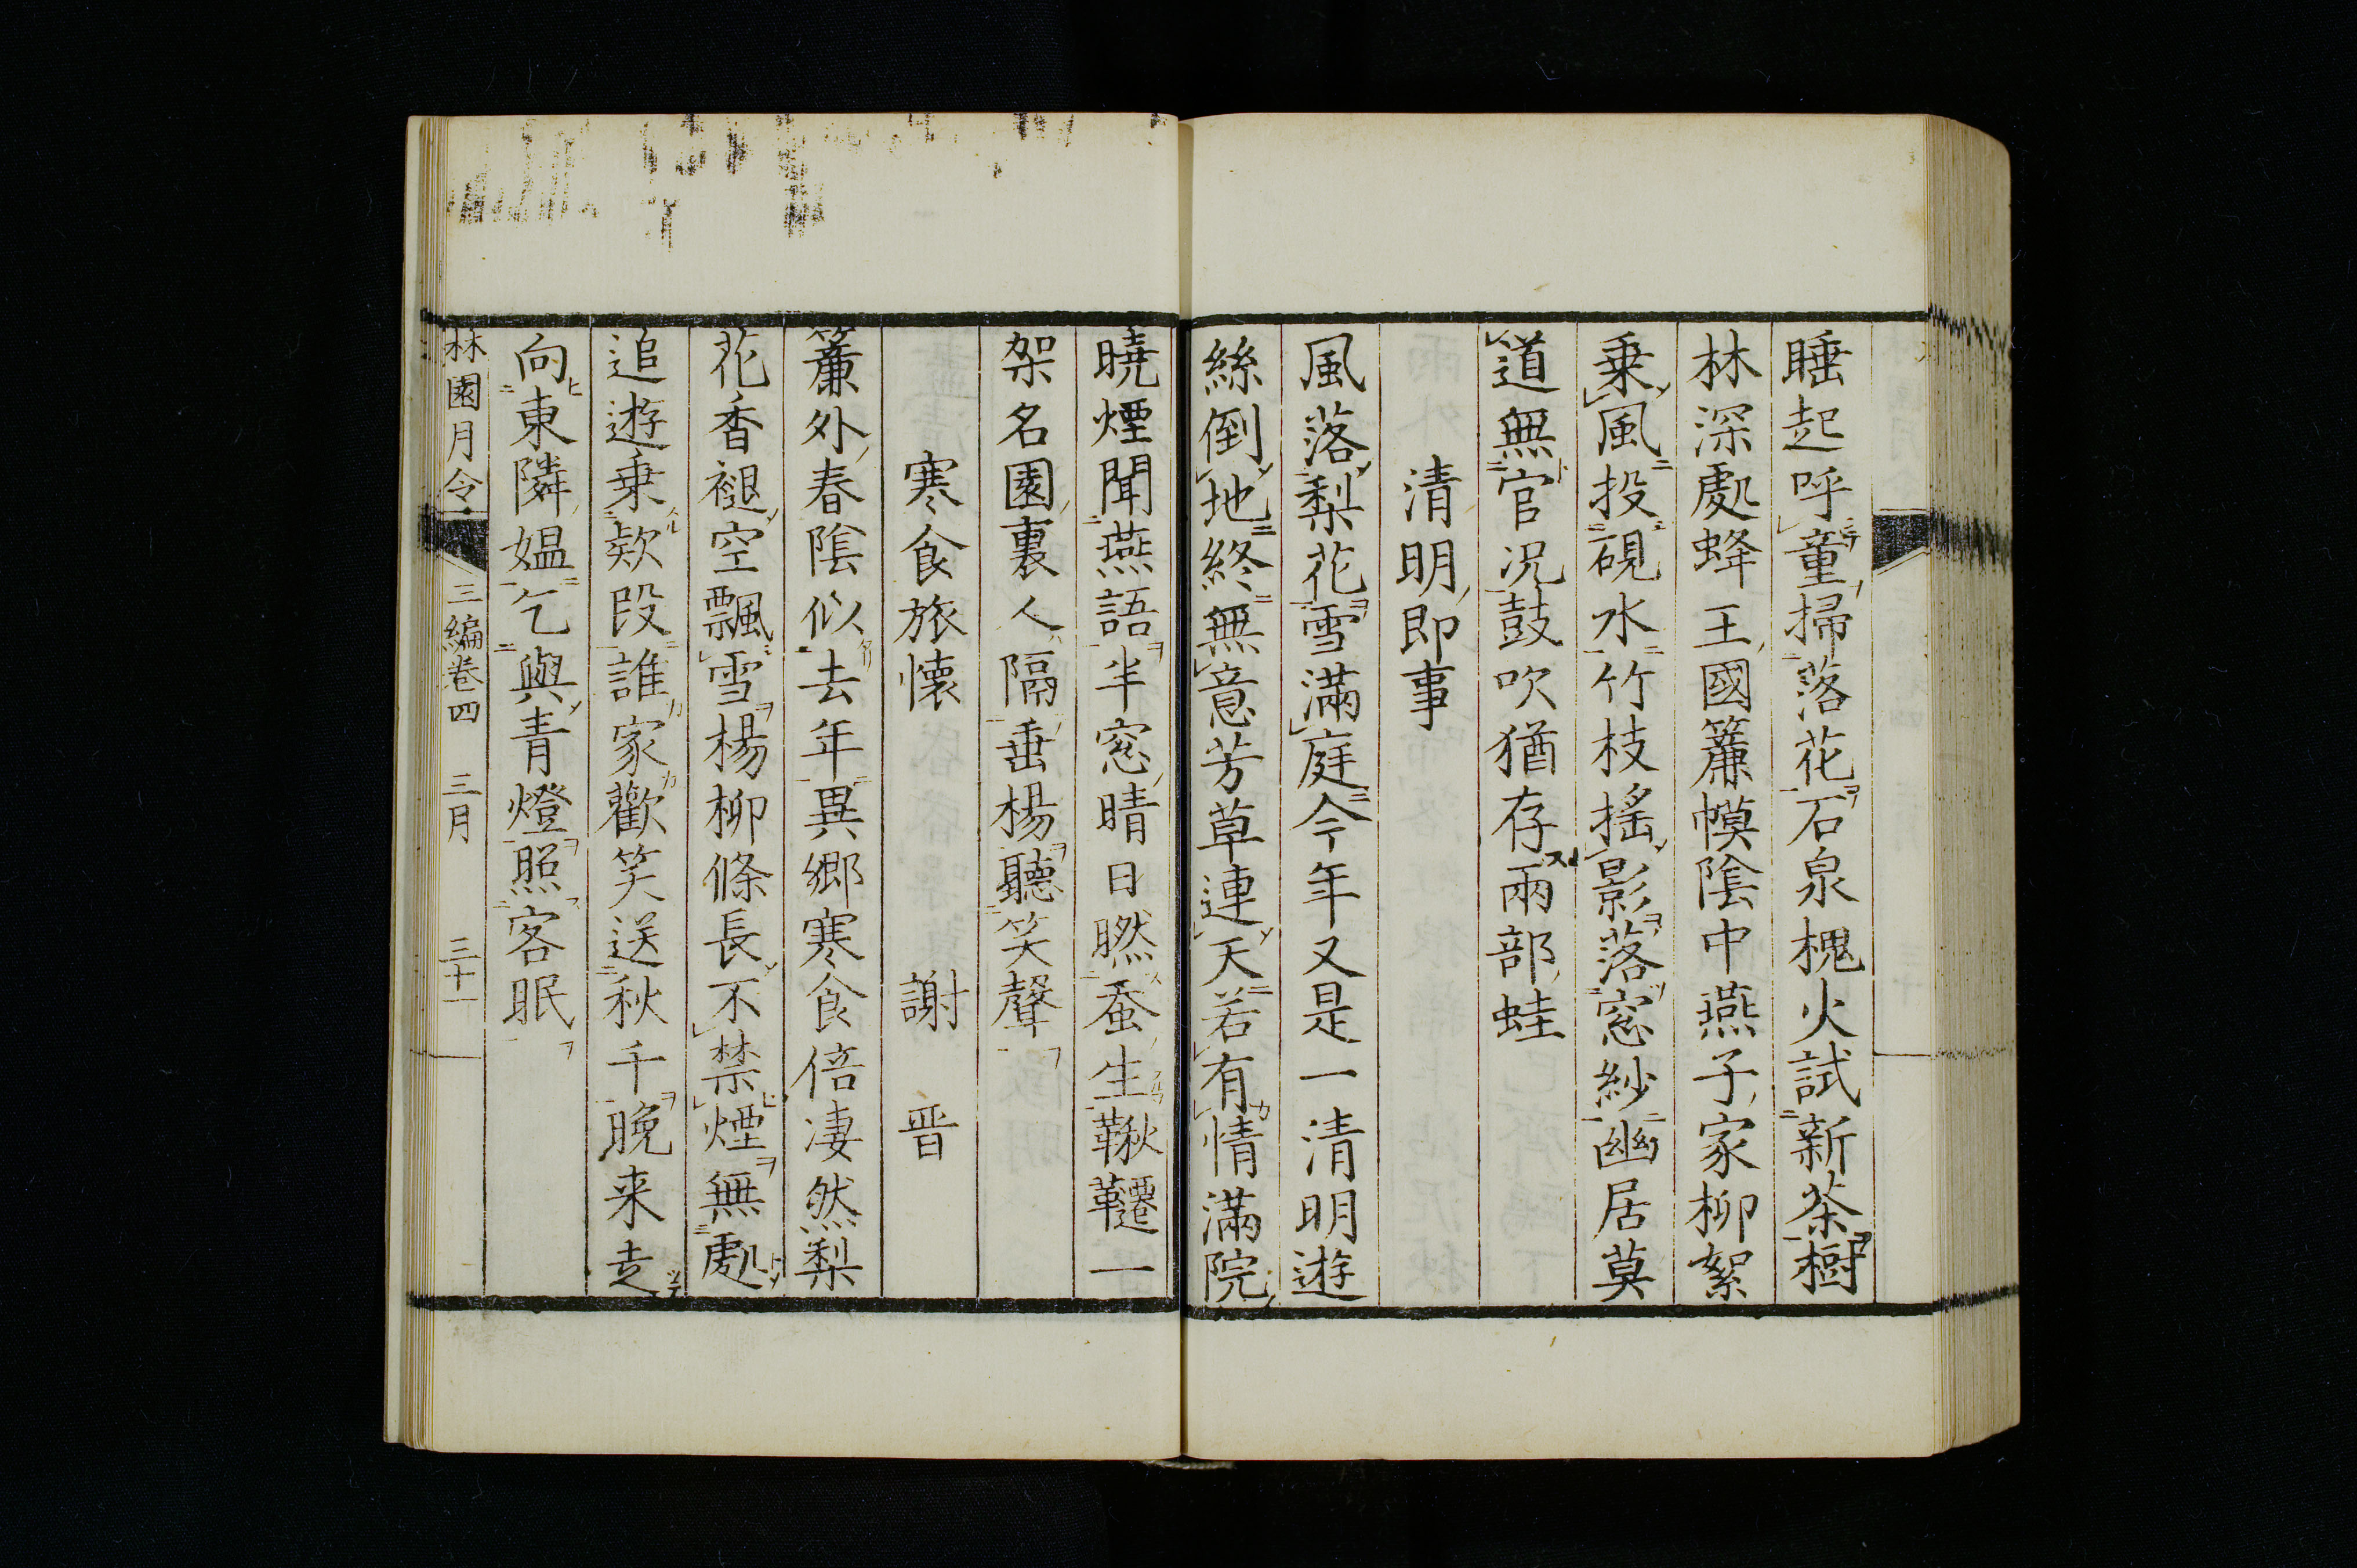 睡起呼童掃落花石泉槐火試新茶樹
林深處蜂王國簾幙陰中燕子家柳絮
乗風投硯水竹枝揺影落窓紗幽居莫
道無官况鼓吹猶存兩部蛙
清明即事
風落梨花雪滿庭今年又是一清明遊
絲倒地終無意芳草連天若有情滿院
曉煙聞燕語半窓晴日㬗蚕生鞦韆一
架名園裏人隔垂楊聽笑聲
寒食旅懐 謝晋
簾外春陰似去年異郷寒食倍凄然梨
花香褪空飄雪楊柳條長不禁煙無處
追遊乗欵段誰家歡笑送秋千晩来走
向東隣媼乞與青燈照客眠
林園月令 三編巻四 三月 三十一